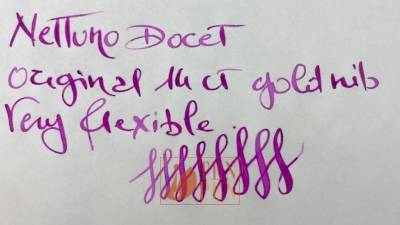 Nettuno Docet
Original 14 ct gold nib
Very flexible